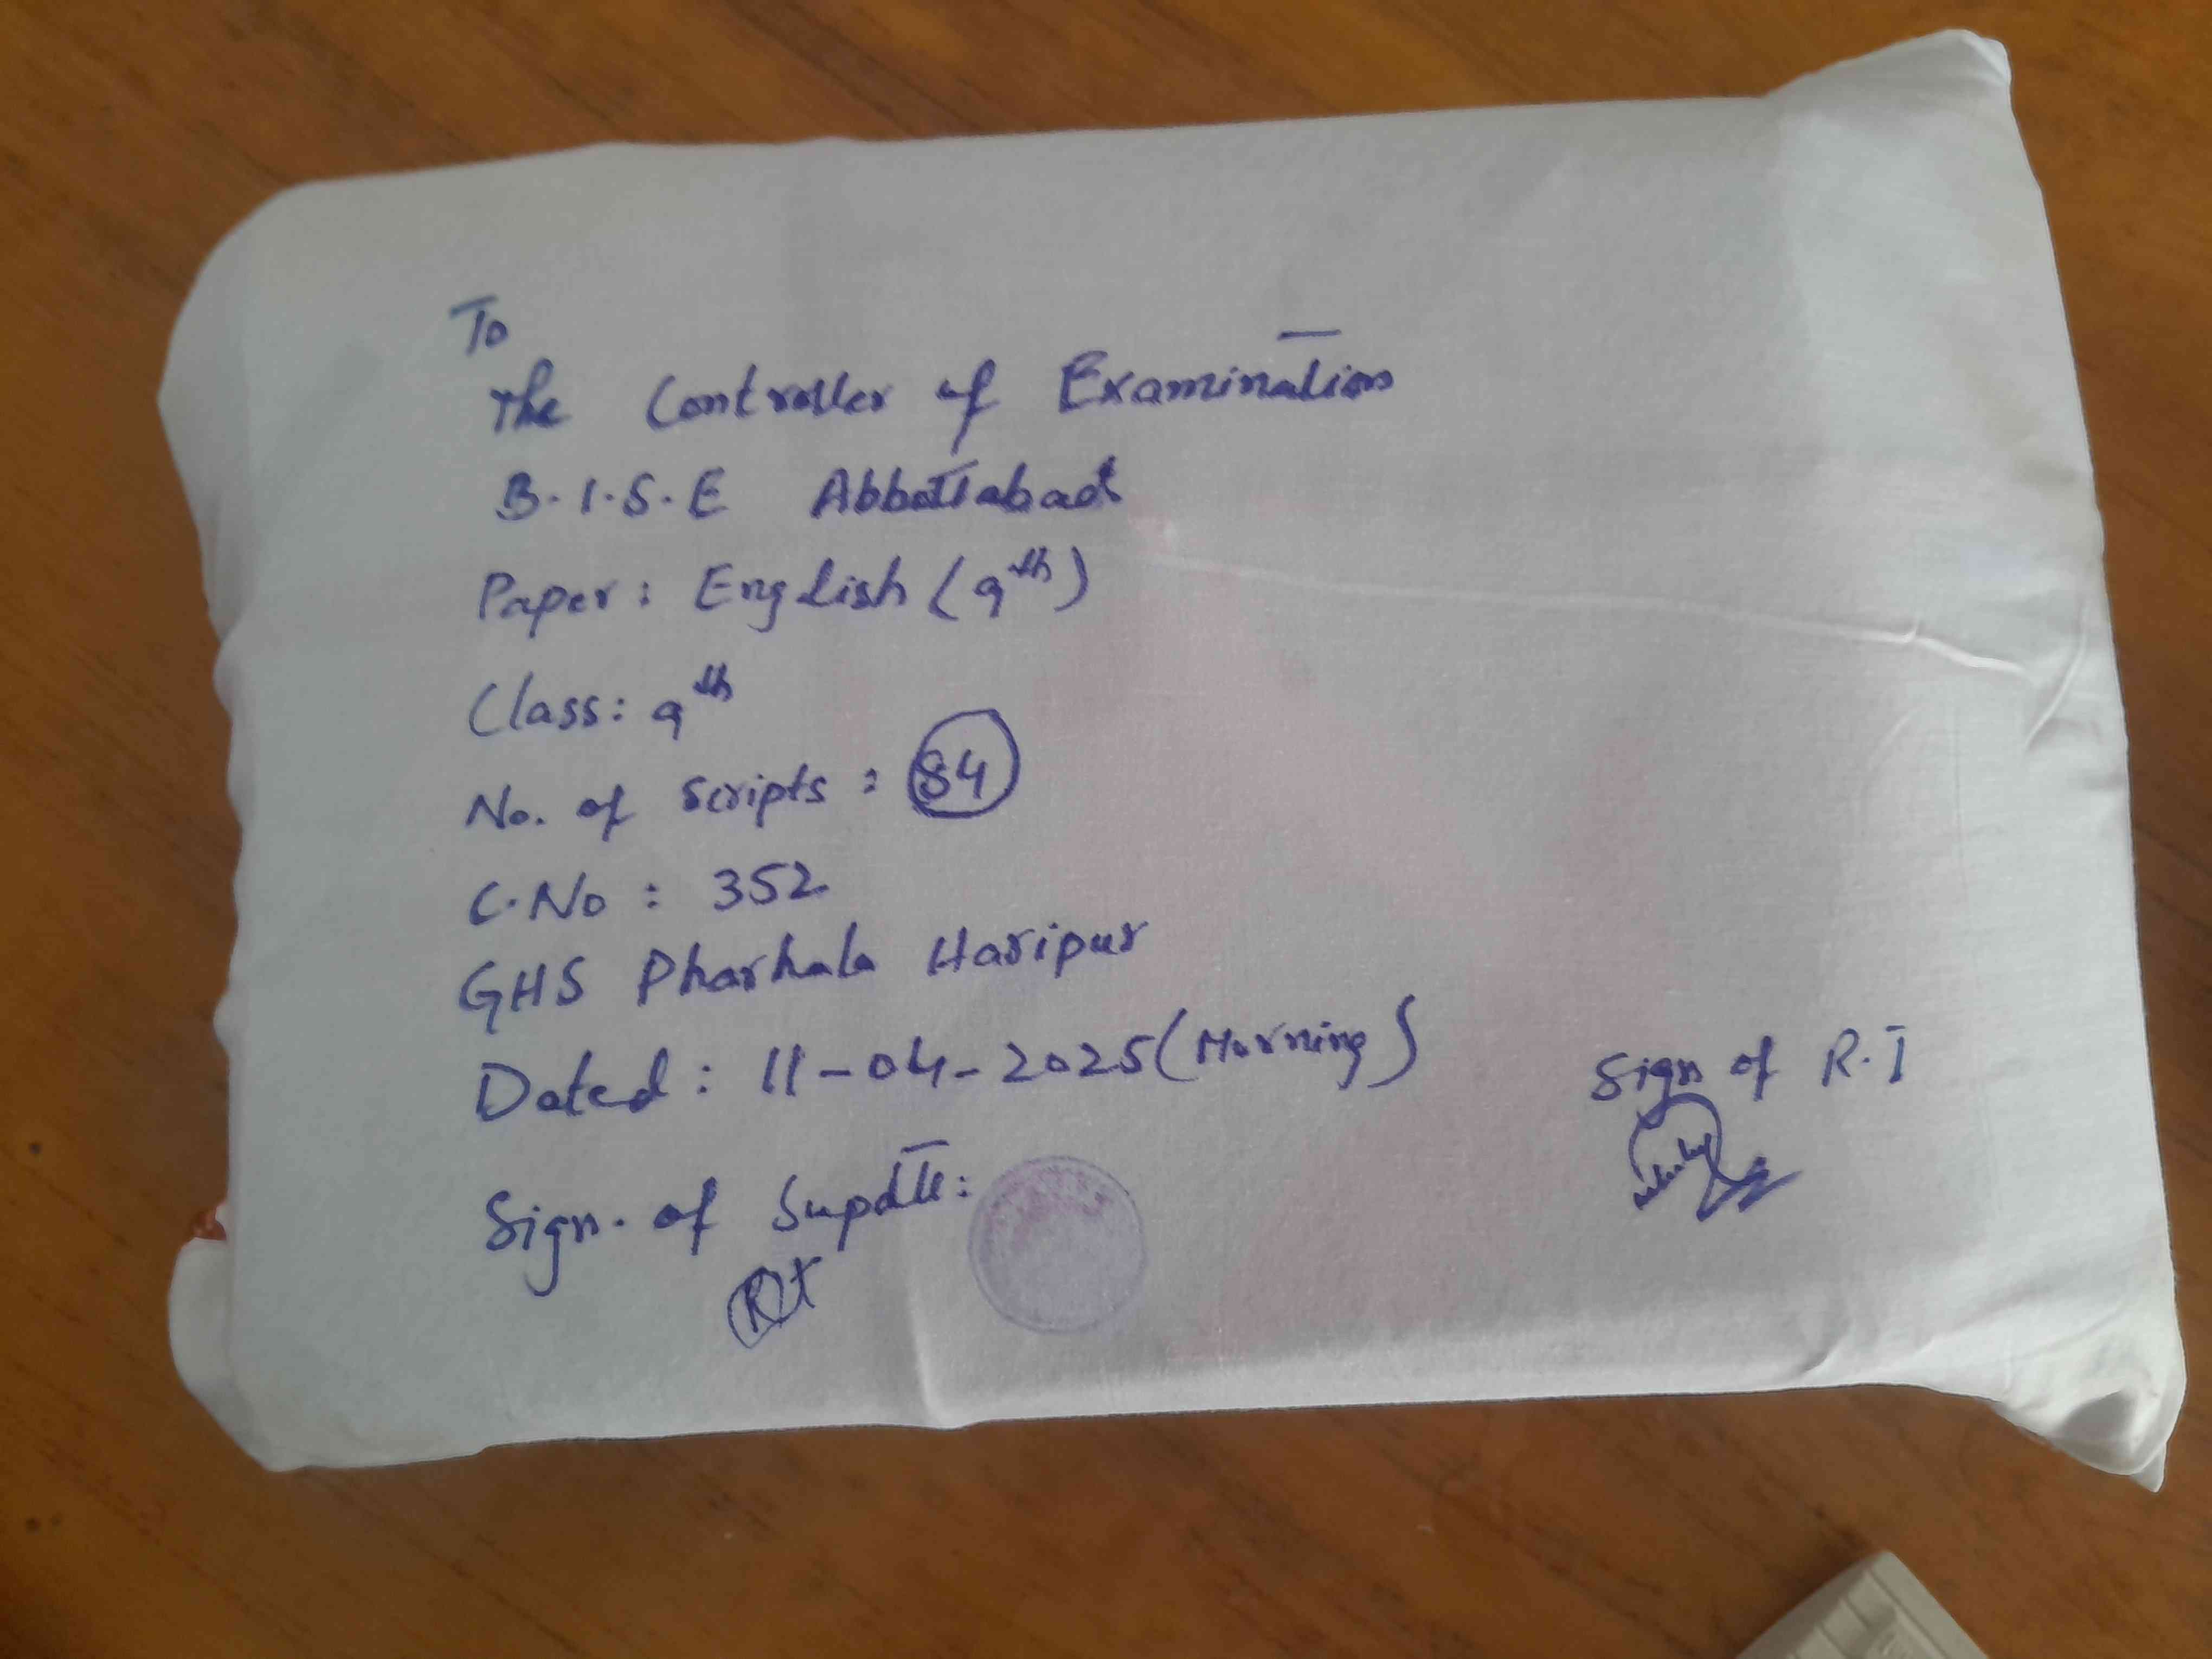 To
The Controller of Examination
B.I.S.E Abbottabad
Paper: English (9th)
Class: 9th
No. of Scripts : 84
C.No : 352
GHS Pharhala Haripur
Dated : 11-04-2025 (Morning)
Sign of R.I
Sign. of Supdtt: